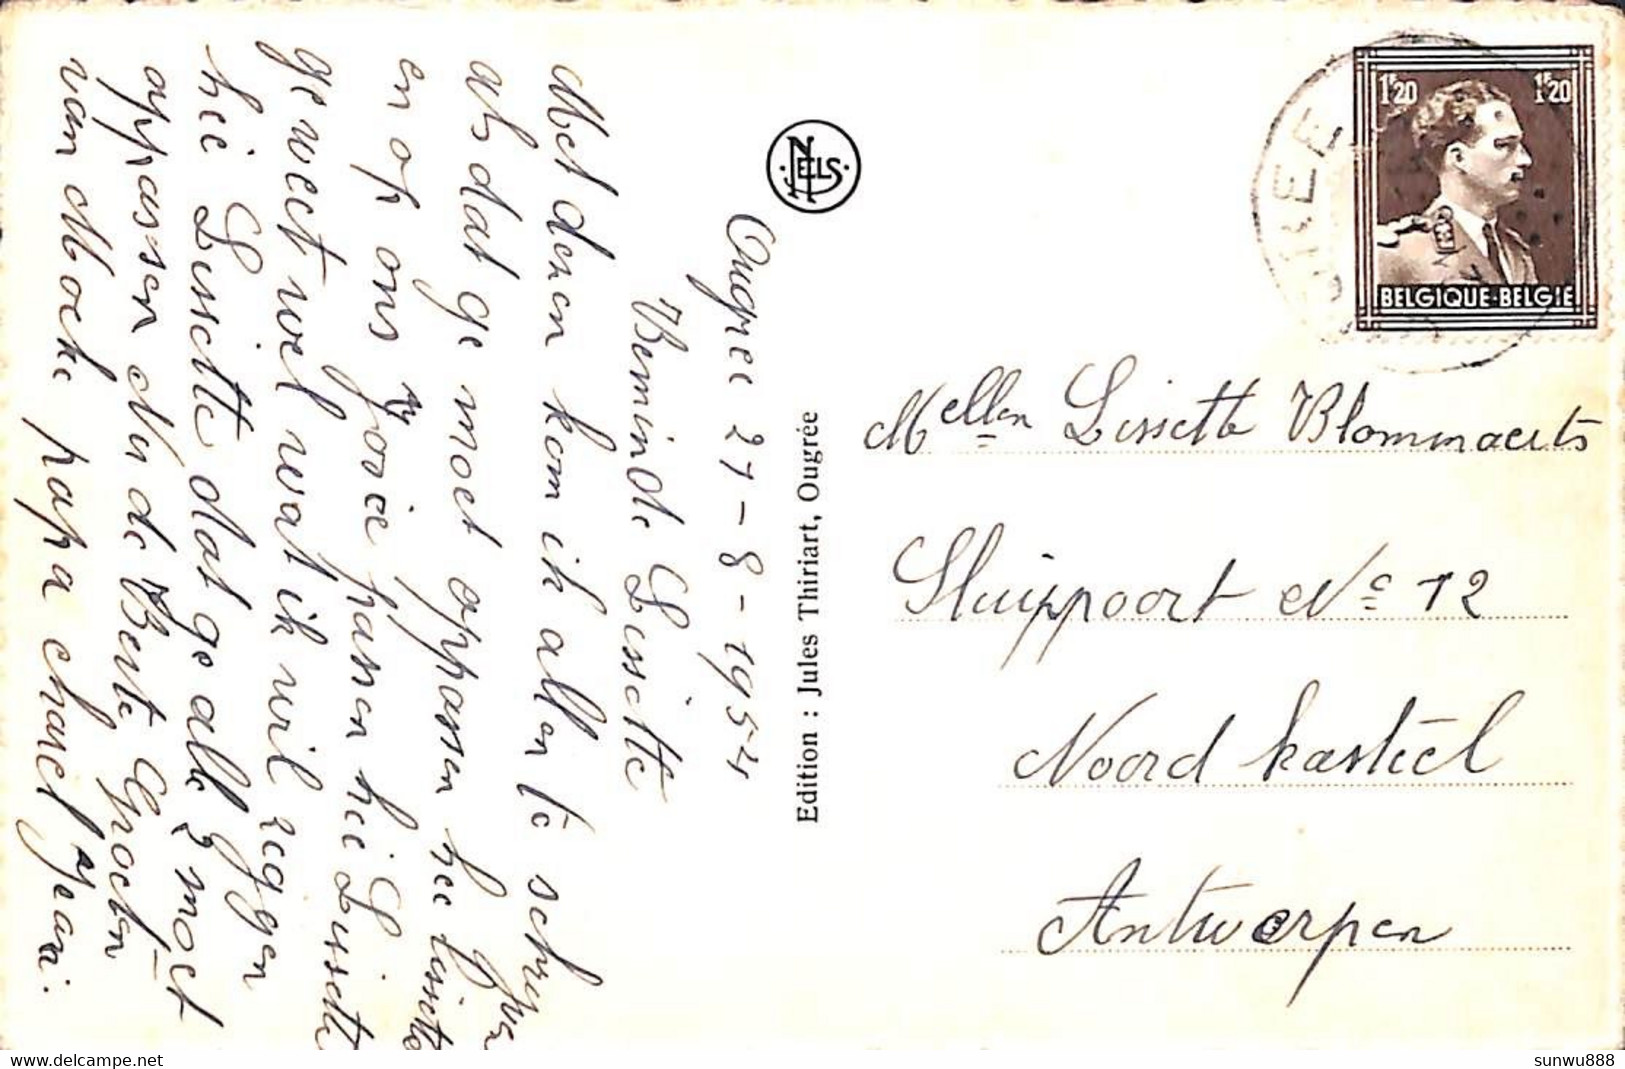 Ougree 21-8-1954
Beminde Lissette
Met deren kom ik allen te schryven
als dat ge moet oppassen hee Lissette
en op ons Josée passen hee Lissette
ge weet wel wat ik wil zeggen
hee Lissette dat ge alle moet
oppassen Nu de Beste Groeten
van Moeke papa charel Jean:
NELS
Edition : Jules Thiriart, Ougrée
OUGREE
1F20 1F20
BELGIQUE-BELGIE
Mellen Lissette Blommaerts
Sluippoort No 12
Noord kasteel
Antwerpen
sunwu888